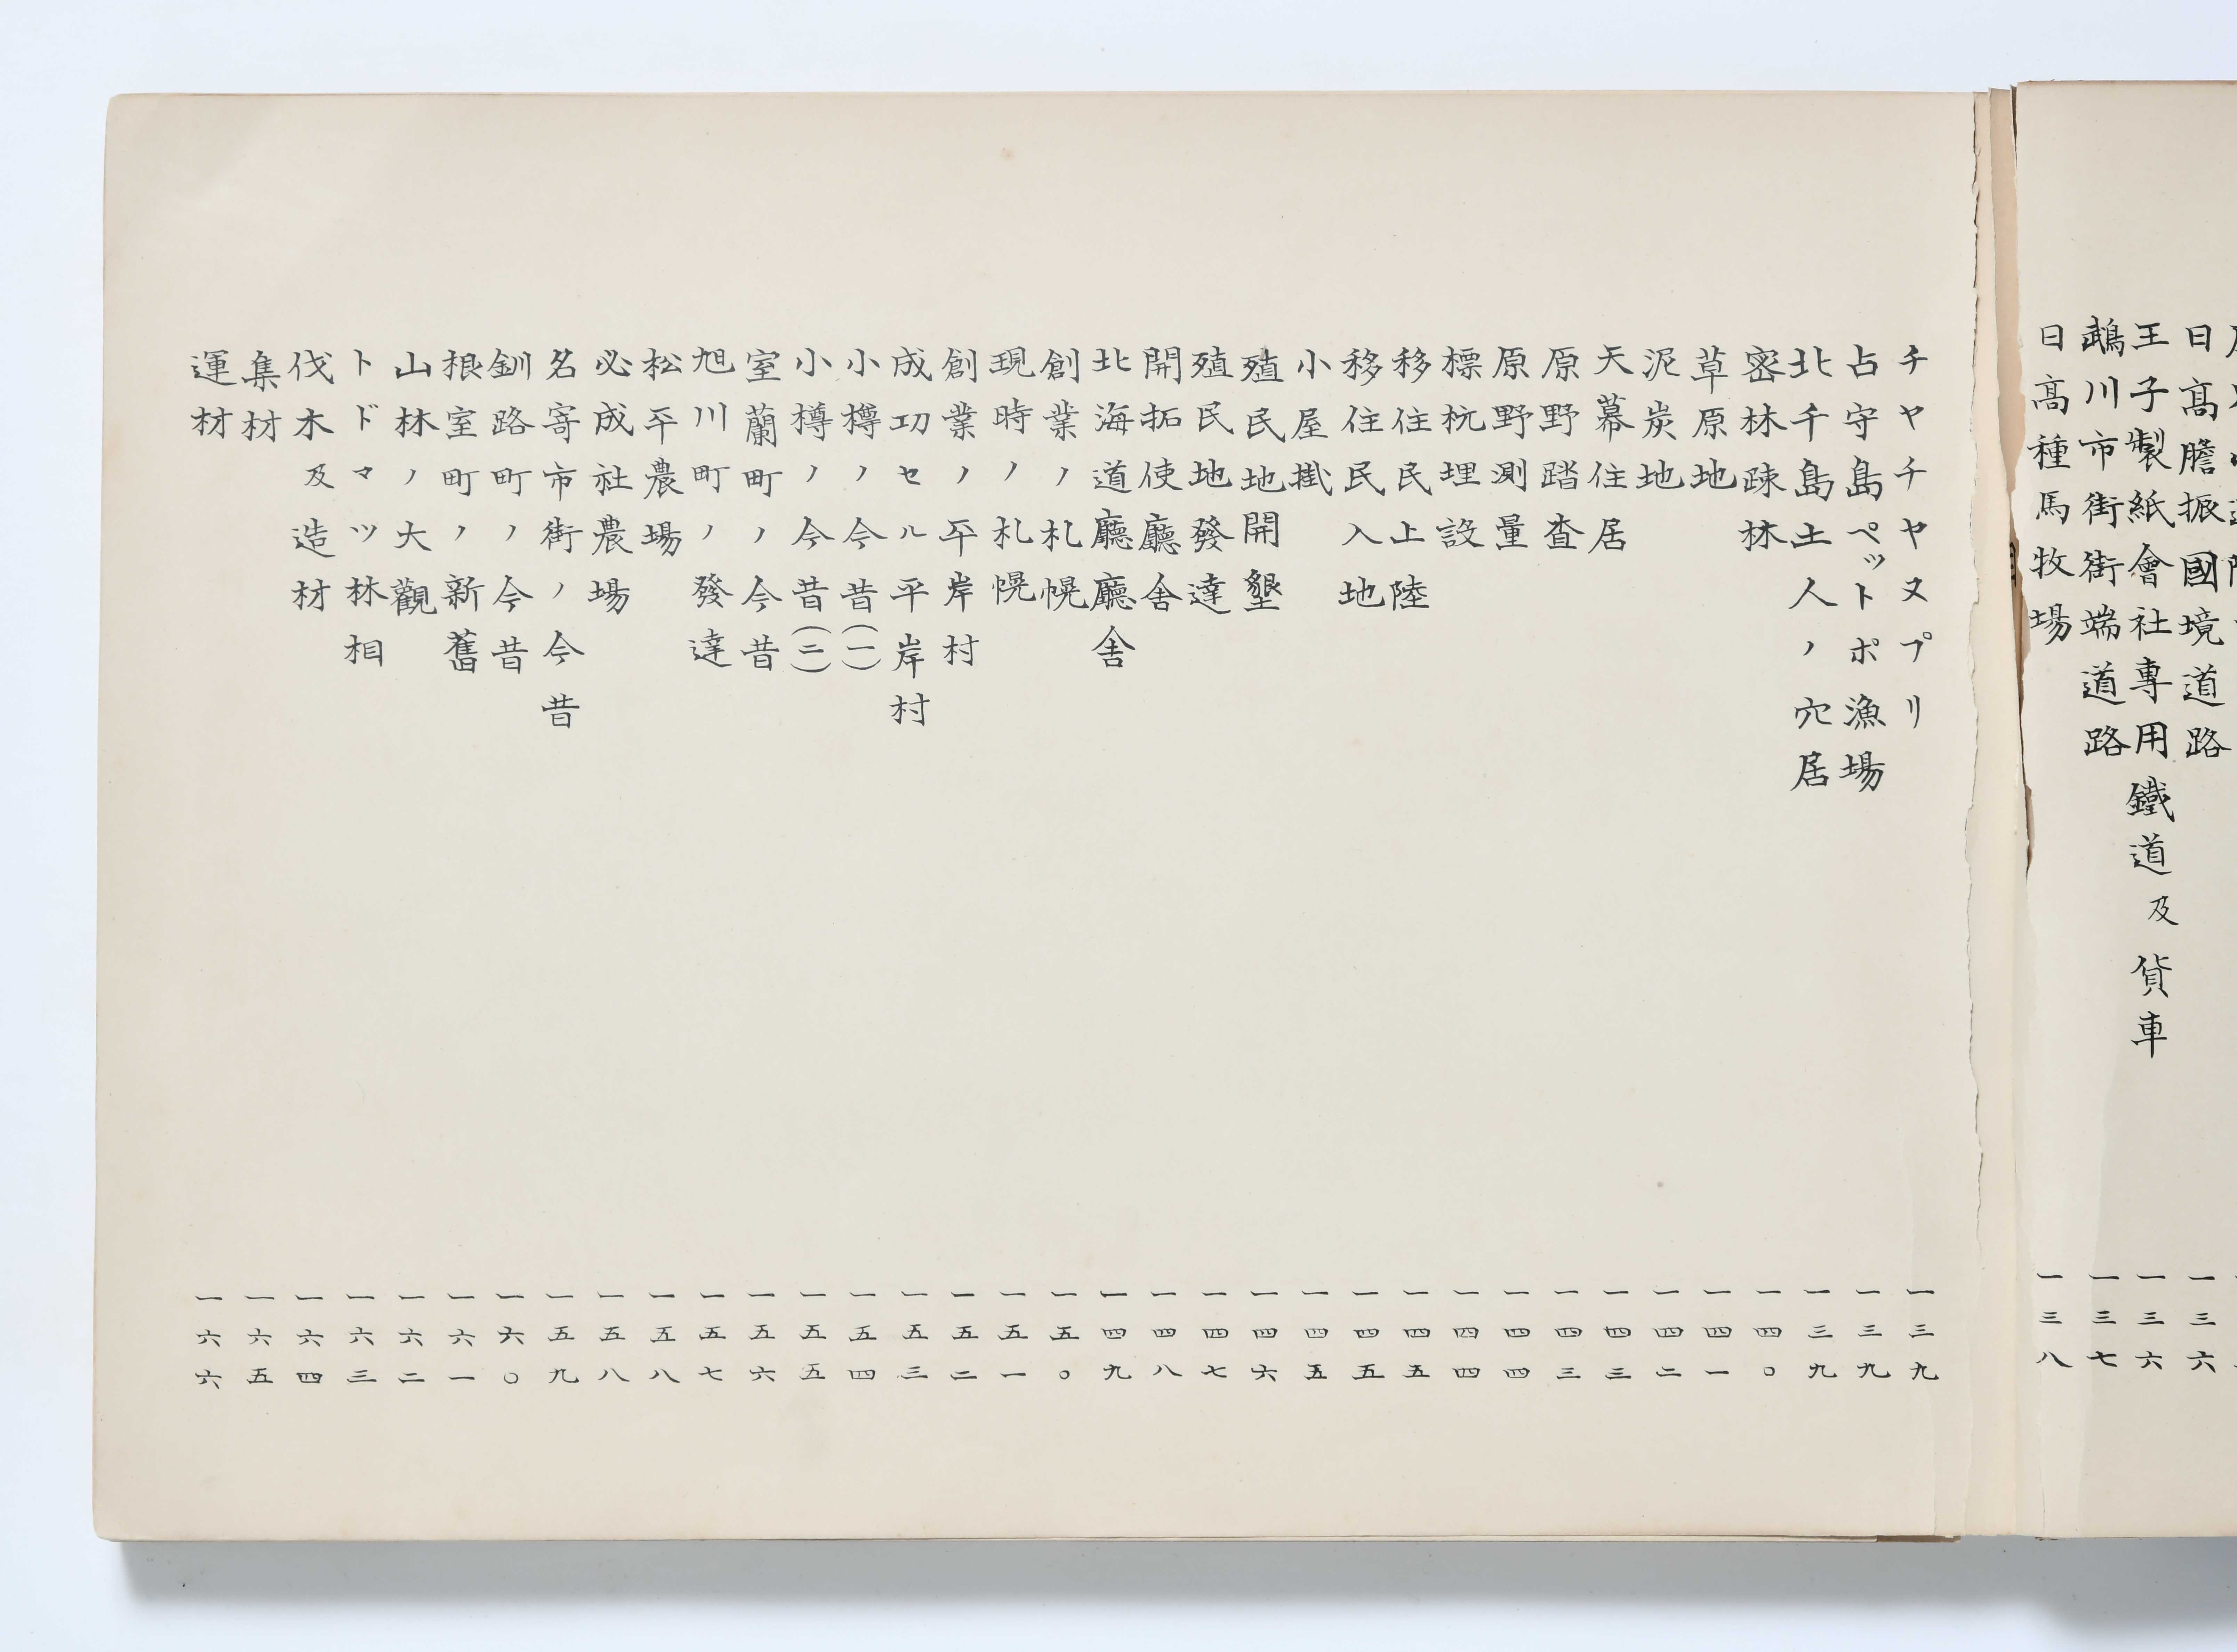 日高膽振國境道路 一三六
王子製紙會社專用鐵道及貨車 一三六
鵡川市街街端道路 一三七
日高種馬牧場 一三八
チヤチヤヌプリ 一三九
占守島ペットポ漁場 一三九
北千島土人ノ穴居 一三九
密林疎林 一四〇
草原地 一四一
泥炭地 一四二
天幕住居 一四三
原野踏査 一四三
原野測量 一四四
標杭埋設 一四四
移住民上陸 一四五
移住民入地 一四五
小屋掛 一四五
殖民地開墾 一四六
殖民地發達 一四七
開拓使廳舍 一四八
北海道廳廳舍 一四九
創業ノ札幌 一五〇
現時ノ札幌 一五一
創業ノ平岸村 一五二
成功セル平岸村 一五三
小樽ノ今昔(一) 一五四
小樽ノ今昔(二) 一五五
室蘭町ノ今昔 一五六
旭川町ノ發達 一五七
松平農場 一五八
必成社農場 一五八
名寄市街ノ今昔 一五九
釧路町ノ今昔 一六〇
根室町ノ新舊 一六一
山林ノ大觀 一六二
トドマツ林相 一六三
伐木及造材 一六四
集材 一六五
運材 一六六